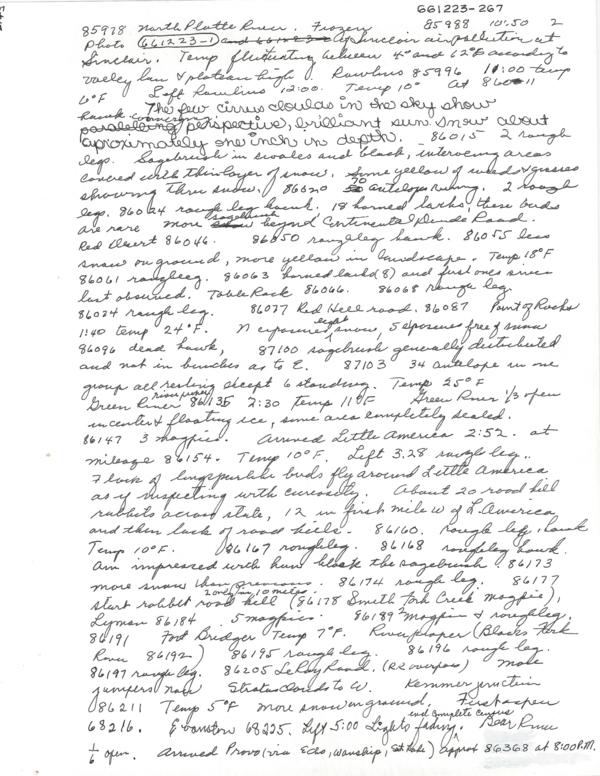 661223-267
85978 North Platte River. Frozen 85988 10:50 2
Photo (661223-1) air pollution at
Sinclair. Temp fluctuating between 4° and 62°F according to
valley low & plateau high. Rawlins 85996 11:00 temp
6°F Left Rawlins 12:00. Temp 10° At 86011
hawk. The few cirrus clouds in the sky show
converging perspective, brilliant sun. Snow about
aproximately one inch in depth. 86015 2 rough
legs. Sagebrush in swales and black, intervening areas
covered with thin layer of snow. Some yellow of weeds & grasses
showing thru snow. 86020 70 antelope running. 2 rough
legs. 86024 rough leg hawk. 18 horned larks, these birds
are rare more sagebrush beyond Continental Divide Road.
Red Desert 86046. 86050 roughleg hawk. 86055 less
snow on ground, more yellow in landscape. Temp 18°F
86061 roughleg. 86063 horned lark (8) and first ones since
last observed. Table Rock 86066. 86068 rough leg.
86074 rough leg. 86077 Red Hill road. 86087 Point of Rocks
1:40 temp 24°F. N exposures light snow, S exposures free of snow
86096 dead hawk, 87100 sagebrush generally distributed
and not in bunches as to E. 87103 34 antelope in one
group all resting except 6 standing. Temp 25°F
Green River 86135 2:30 temp 11°F Green River 1/3 open
in center & floating ice, some area completely sealed.
86147 3 magpies. Arrived Little America 2:52. at
mileage 86154. Temp 10°F. Left 3:28 rough leg..
Flock of longspurlike birds fly around Little America
as if inspecting with curiosity. About 20 road kill
rabbits across state, 12 in first mile W of L. America
and then lack of road kills. 86160. rough leg hawk
Temp 10°F. 86167 roughleg. 86168 roughleg hawk.
am impressed with how black the sagebrush. 86173
more snow than previous. 86174 rough leg. 86177
2 only in 10 miles
start rabbit road kill (86178 Smith Fork Creek magpie),
Lyman 86184. 5 magpies. 86189 2 magpies & roughleg.
86191 Fort Bridger Temp 7°F. River (Blacks Fork
River 86192) 86195 rough leg. 86196 rough leg.
86197 rough leg. 86205 LeRoy Road. (RR overpass) more
junipers now Stratus clouds to W. Kemmer junction
86211 Temp 5°F more snow on ground. First aspen
68216. Evanston 68225. Left 5:00 Lights fading. end complete census Bear River
1/6 open. Arrived Provo (via Echo, Wanship,) approx 86368 at 8:00 P.M.